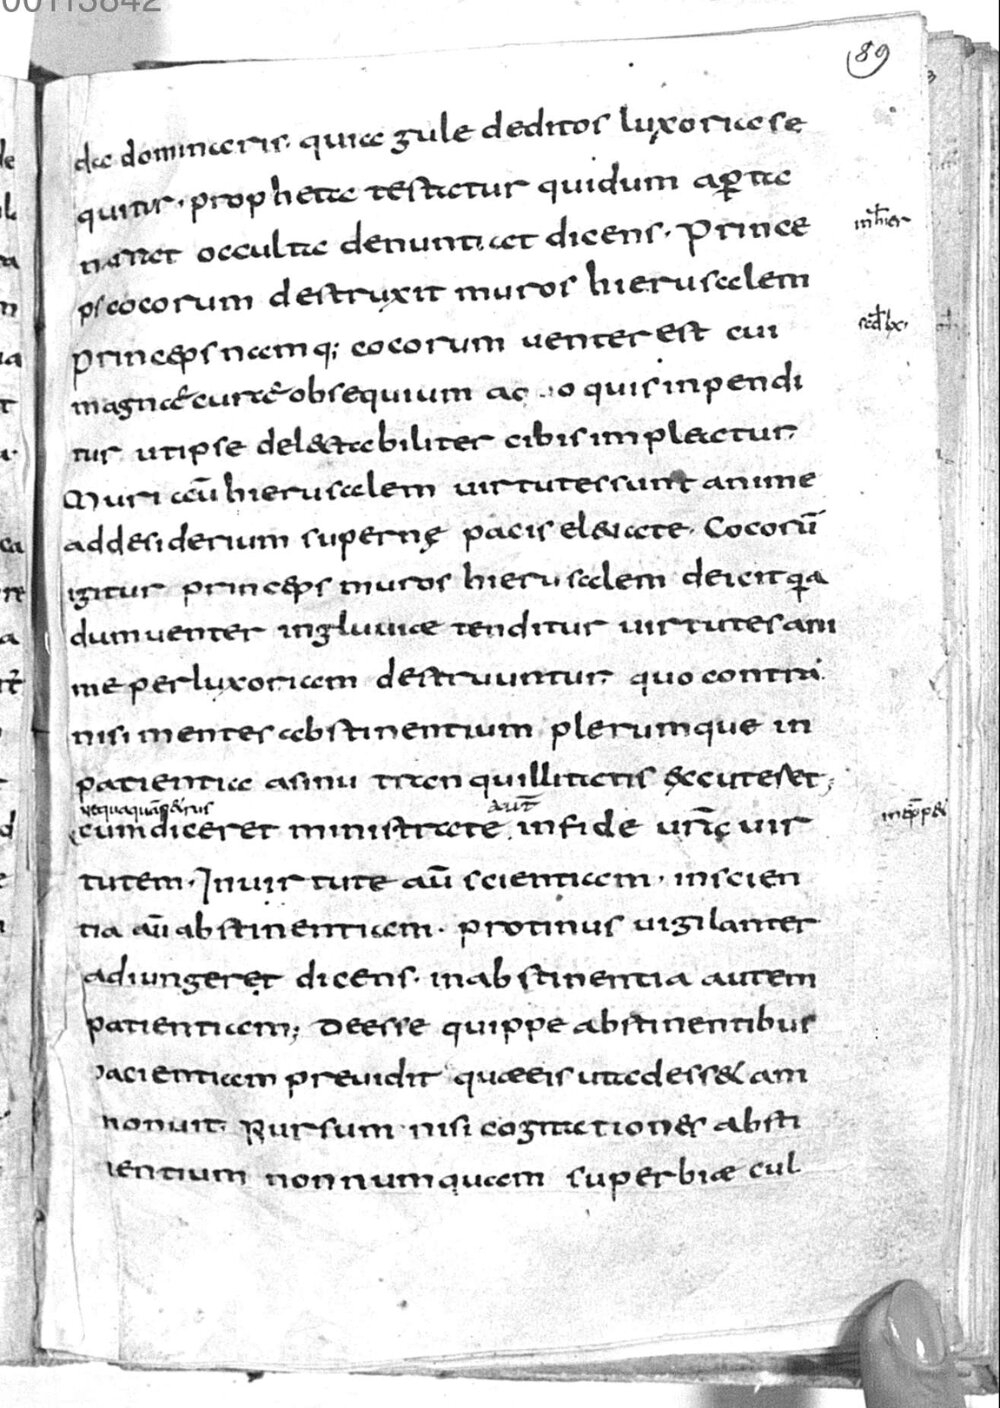 00113842
89
da dominaris. quia gule deditos luxoria se
quitur. propheta testatur qui dum aperta
narret occulta denuntiat dicens. Prince
ps cocorum destruxit muros hierusalem
princeps namq; cocorum venter est cui
magna cura obsequium a quis inpendi
tur ut ipse delectabiliter cibis impleatur
Muri aū hierusalem uirtutes sunt anime
ad desiderium supernę pacis eleuate. Cocorū
igitur princeps muros hierusalem deicit qa
dum uenter ingluuiæ tenditur uirtutes ani
me per luxoriam destruuntur quo contra.
nisi mentes abstinentium plerumque in
patientia a sinu tranquillitatis excuteret;
nequaquā petrus
aut̄
cum diceret ministrate in fide urā uir
tutem. In uirtute aū scientiam. in scien
tia aū abstinentiam. protinus uigilanter
adiungeret dicens. in abstinentia autem
patientiam; Deesse quippe abstinentibus
pacientiam preuidit quæ eis uta dess& am
monuit. Rursum nisi cogitationes absti
nentium nonnumquam superbiæ cul